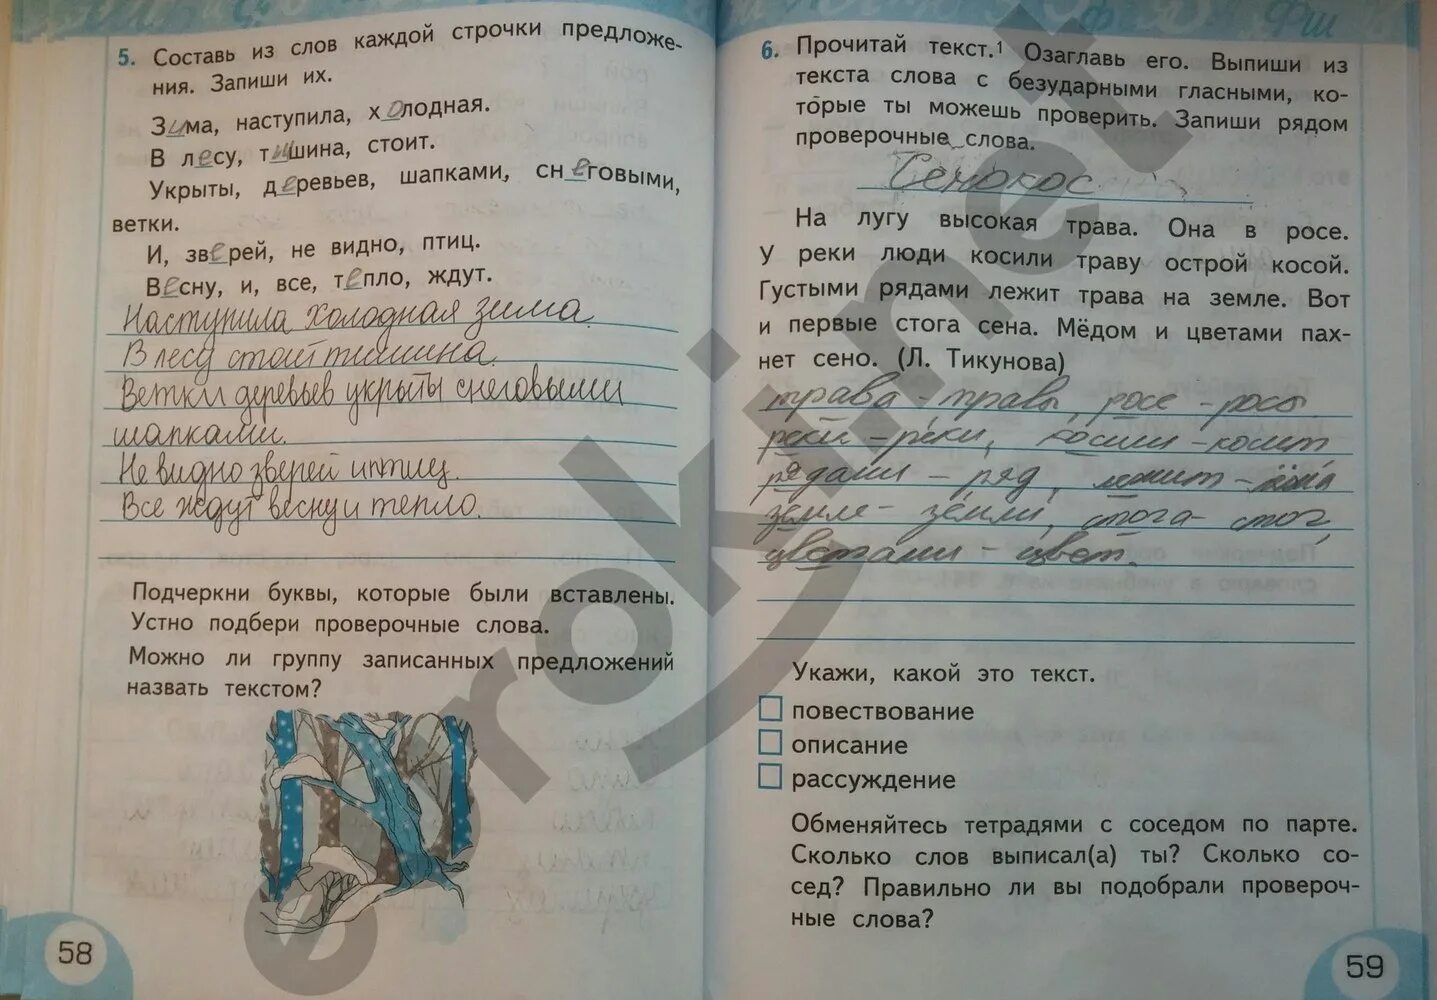 5. Составь из слов каждой строчки предложе-
ния. Запиши их.
Зима, наступила, холодная.
В лесу, тишина, стоит.
Укрыты, деревьев, шапками, снеговыми,
ветки.
И, зверей, не видно, птиц.
Весну, и, все, тепло, ждут.
Наступила холодная зима.
В лесу стоит тишина.
Ветки деревьев укрыты снеговыми
шапками.
Не видно зверей и птиц.
Все ждут весну и тепло.
Подчеркни буквы, которые были вставлены.
Устно подбери проверочные слова.
Можно ли группу записанных предложений
назвать текстом?
58
Фш
6. Прочитай текст.¹ Озаглавь его. Выпиши из
текста слова с безударными гласными, ко-
торые ты можешь проверить. Запиши рядом
проверочные слова.
Сенокос
На лугу высокая трава. Она в росе.
У реки люди косили траву острой косой.
Густыми рядами лежит трава на земле. Вот
и первые стога сена. Мёдом и цветами пах-
нет сено. (Л. Тикунова)
трава - травы, росе - росы
реки - реки, косили - косит
рядами - ряд, лежит -
земле - земли, стога - стог,
цветами - цвет.
Укажи, какой это текст.
повествование
описание
рассуждение
Обменяйтесь тетрадями с соседом по парте.
Сколько слов выписал(а) ты? Сколько со-
сед? Правильно ли вы подобрали провероч-
ные слова?
59
euroki.net